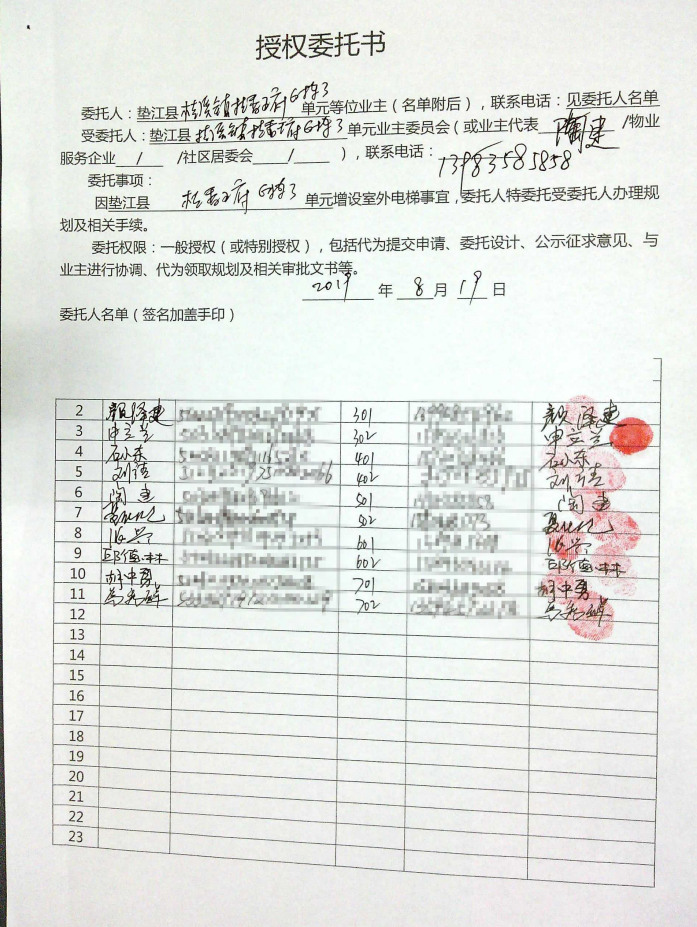 授权委托书
委托人：垫江县桂溪镇桂香王府G栋3单元等位业主（名单附后），联系电话：见委托人名单
受委托人：垫江县桂溪镇桂香王府G栋3单元业主委员会（或业主代表 陶建 /物业
服务企业 / /社区居委会 / ），联系电话：13983585858
委托事项：
因垫江县 桂香王府G栋3 单元增设室外电梯事宜，委托人特委托受委托人办理规
划及相关手续。
委托权限：一般授权（或特别授权），包括代为提交申请、委托设计、公示征求意见、与
业主进行协调、代为领取规划及相关审批文书等。
2019 年 8 月 19 日
委托人名单（签名加盖手印）
2 颜泽建 301 颜泽建
3 申立兰 302 申立兰
4 石小东 401 石小东
5 刘靖 402 刘靖
6 陶建 501 陶建
7 502
8 601
9 邱德林 602 邱德林
10 胡中勇 701 胡中勇
11 702
12
13
14
15
16
17
18
19
20
21
22
23